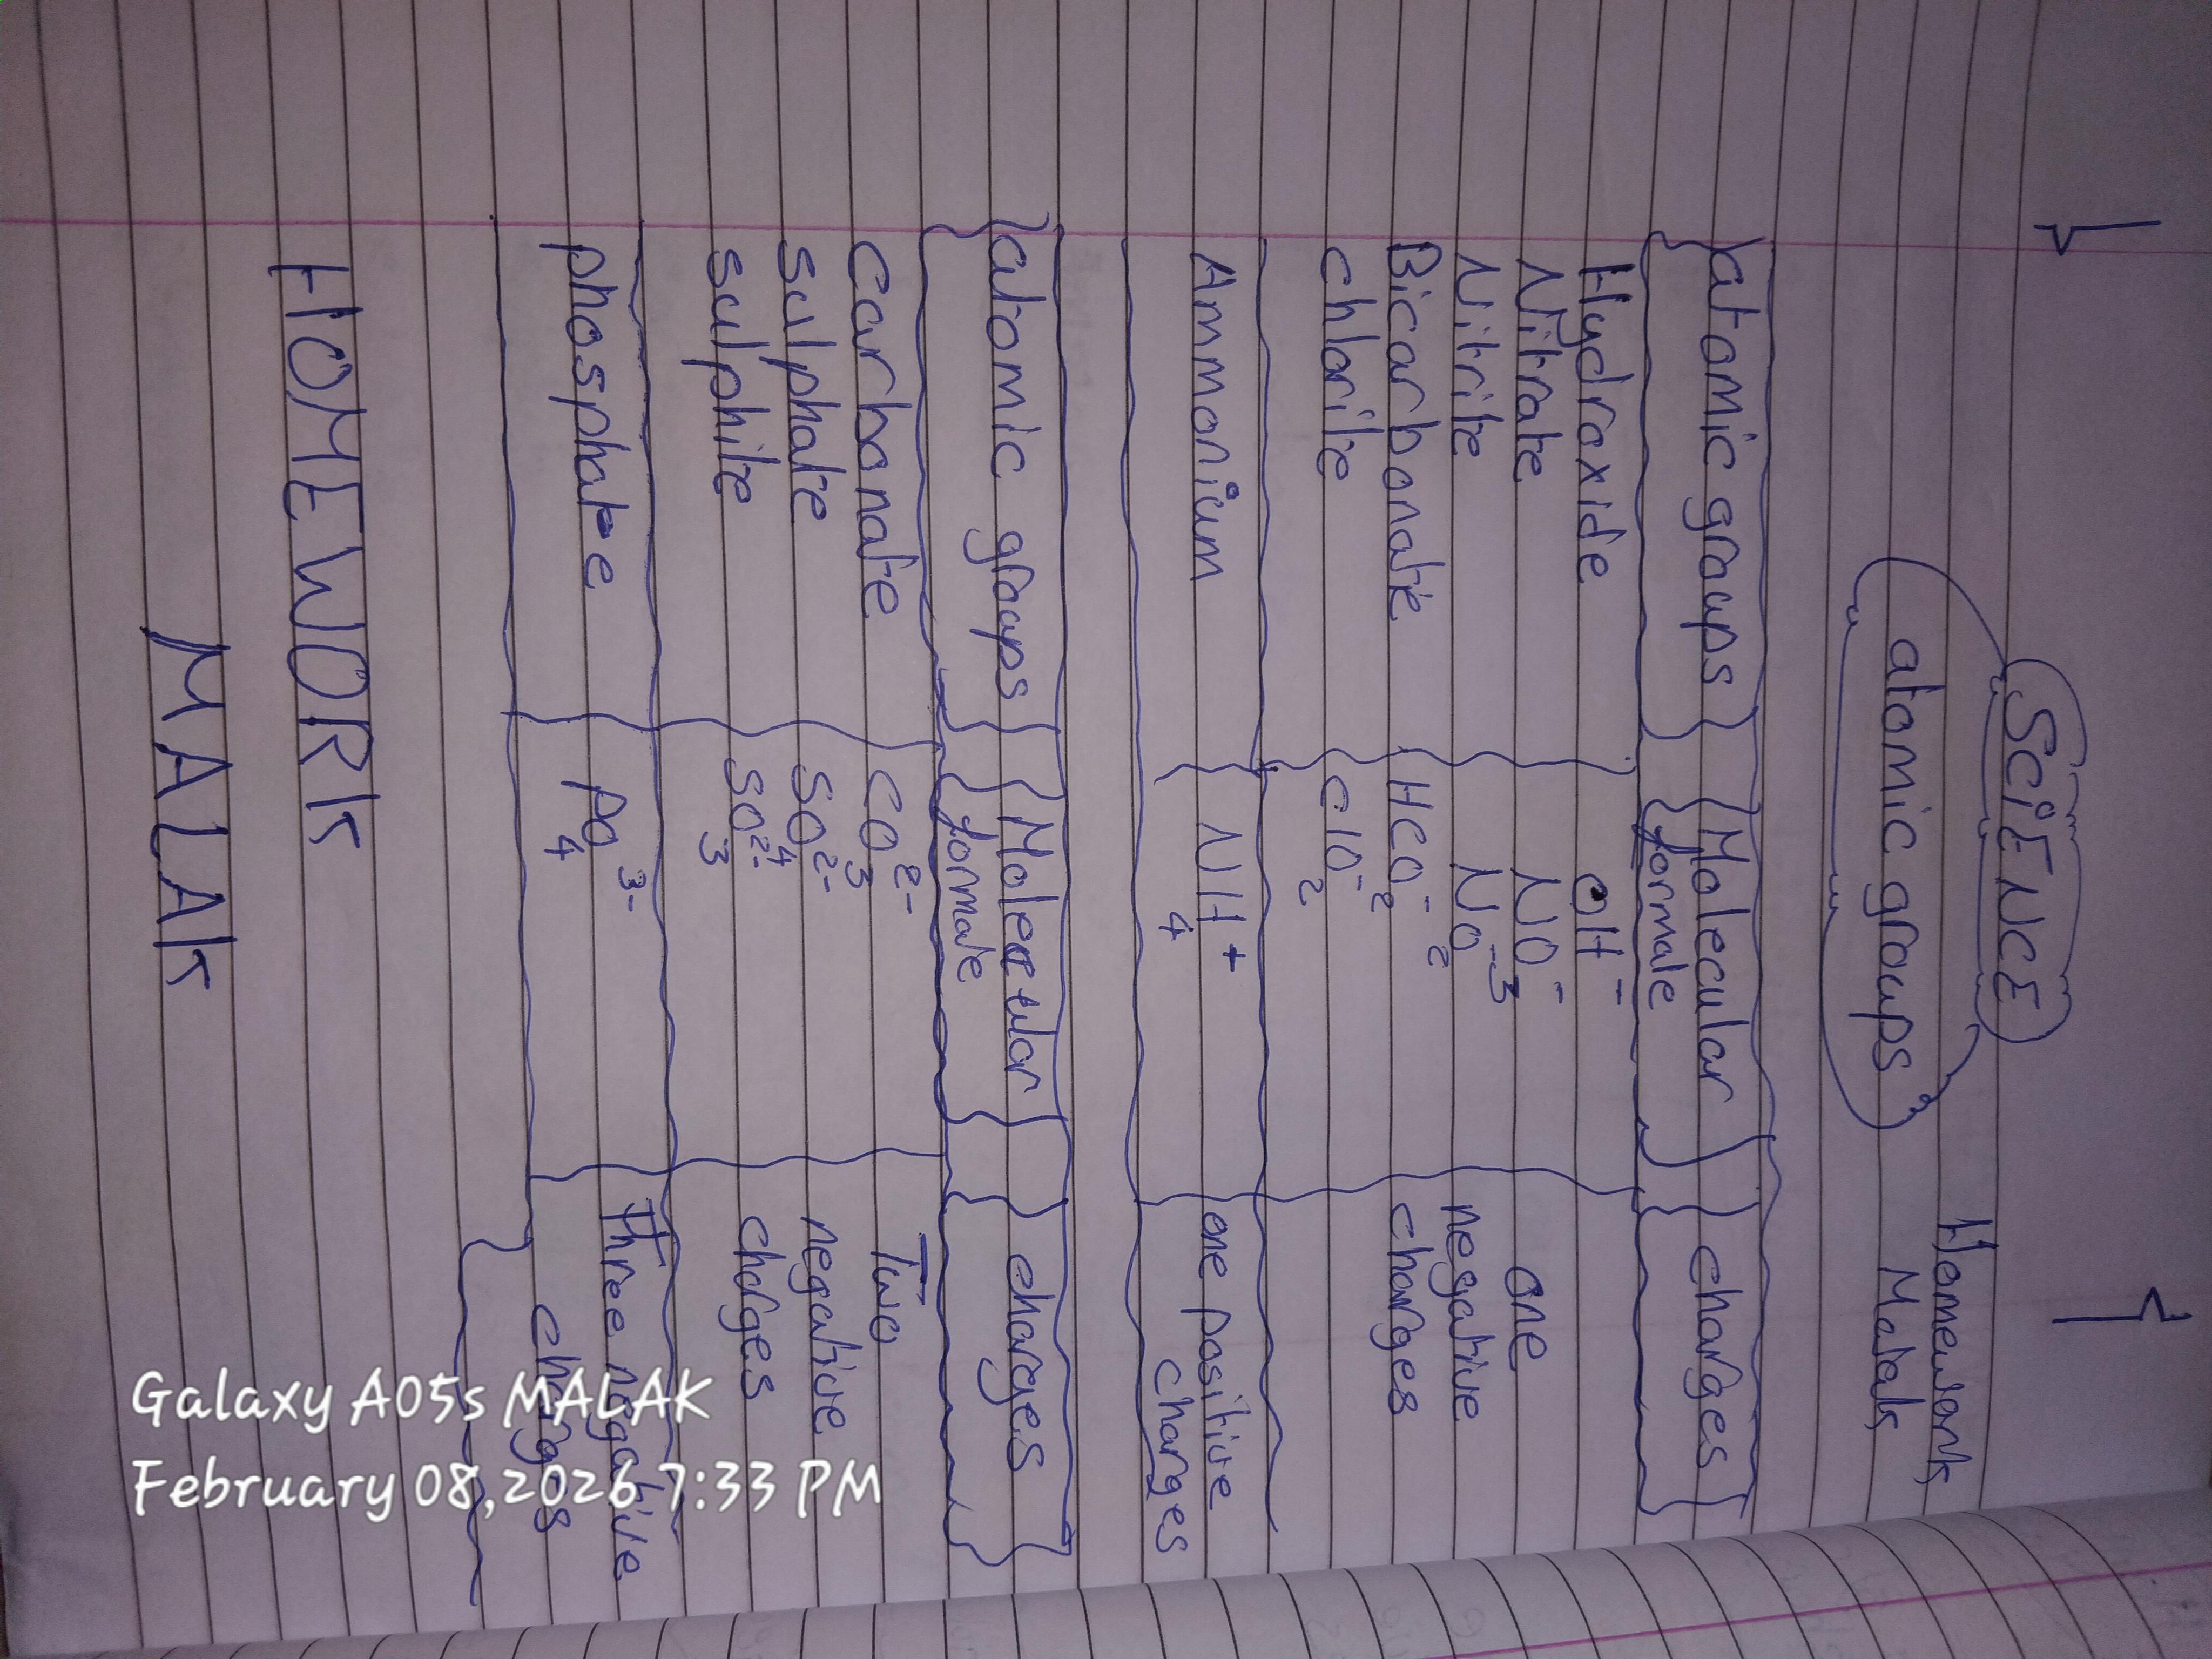 SCiENCE
Homework
atomic groups
Malak
atomic groups Molecular formale charges
Hydroxide OH⁻
Nitrate NO⁻₃ one
Nitrite NO⁻₂ negative
Bicarbonate HCO⁻₂ charges
chlorite ClO⁻₂
Ammonium NH₄⁺ one positive charges
atomic groups Molecular formale charges
Carbonate CO₃²⁻ Two
sulphate SO₄²⁻ negative
sulphite SO₃²⁻ charges
phosphate PO₄³⁻ Three negative charges
HOMEWORK
MALAK
Galaxy A05s MALAK
February 08,2026 7:33 PM